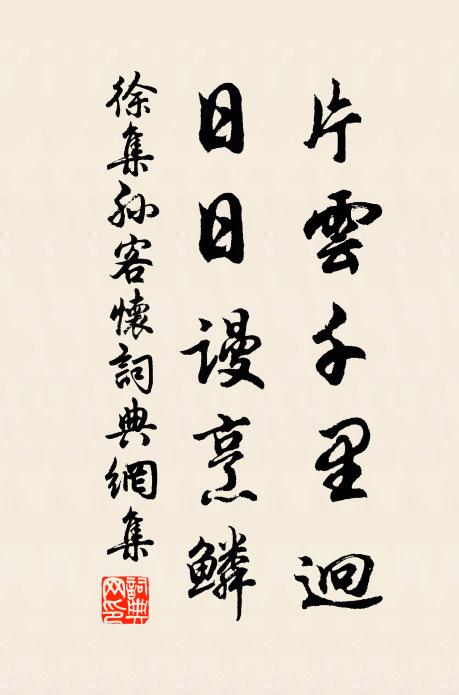 片雲千里迥
日日謾烹鱗
徐集孙客懷詞典網集
詞典网印